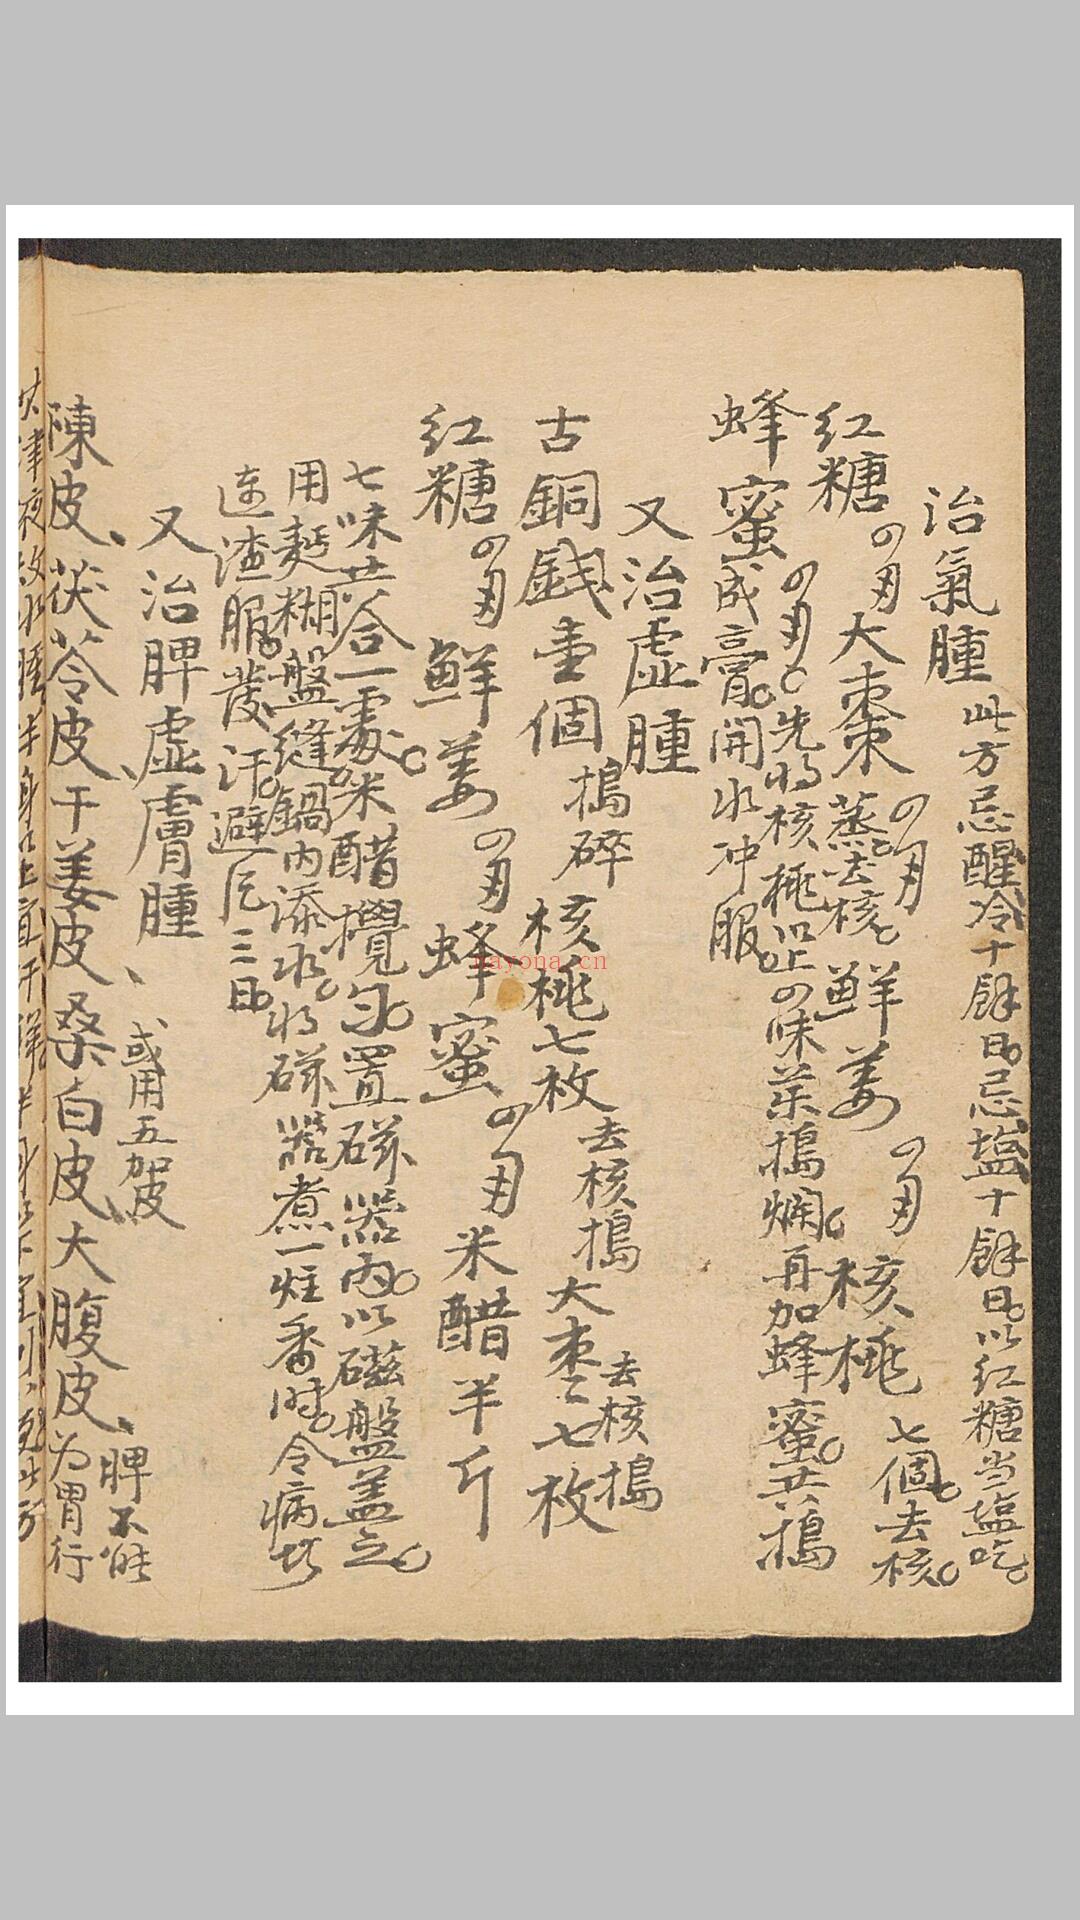 治氣腫 此方忌醒冷十餘日忌塩十餘日以红糖当塩吃
红糖四两大棗四两蒸去核鮮姜四两核桃七個去核
蜂蜜四两先将核桃以上四味菜搗爛再加蜂蜜共搗
成膏開水冲服
又治虚腫
古銅錢壹個搗碎核桃七枚去核搗大枣七枚去核搗
红糖四两鮮姜四两蜂蜜四两米醋半斤
七味共合一處米醋攪匀置磁器内以磁盤盖之
用麺糊盤縫鍋内添水将磁器煮一炷香时令病人
连渣服發汗避风三日
又治脾虚膚腫
或用五加皮
陳皮茯苓皮干姜皮桑白皮大腹皮脾不能为胃行
nayona.cn